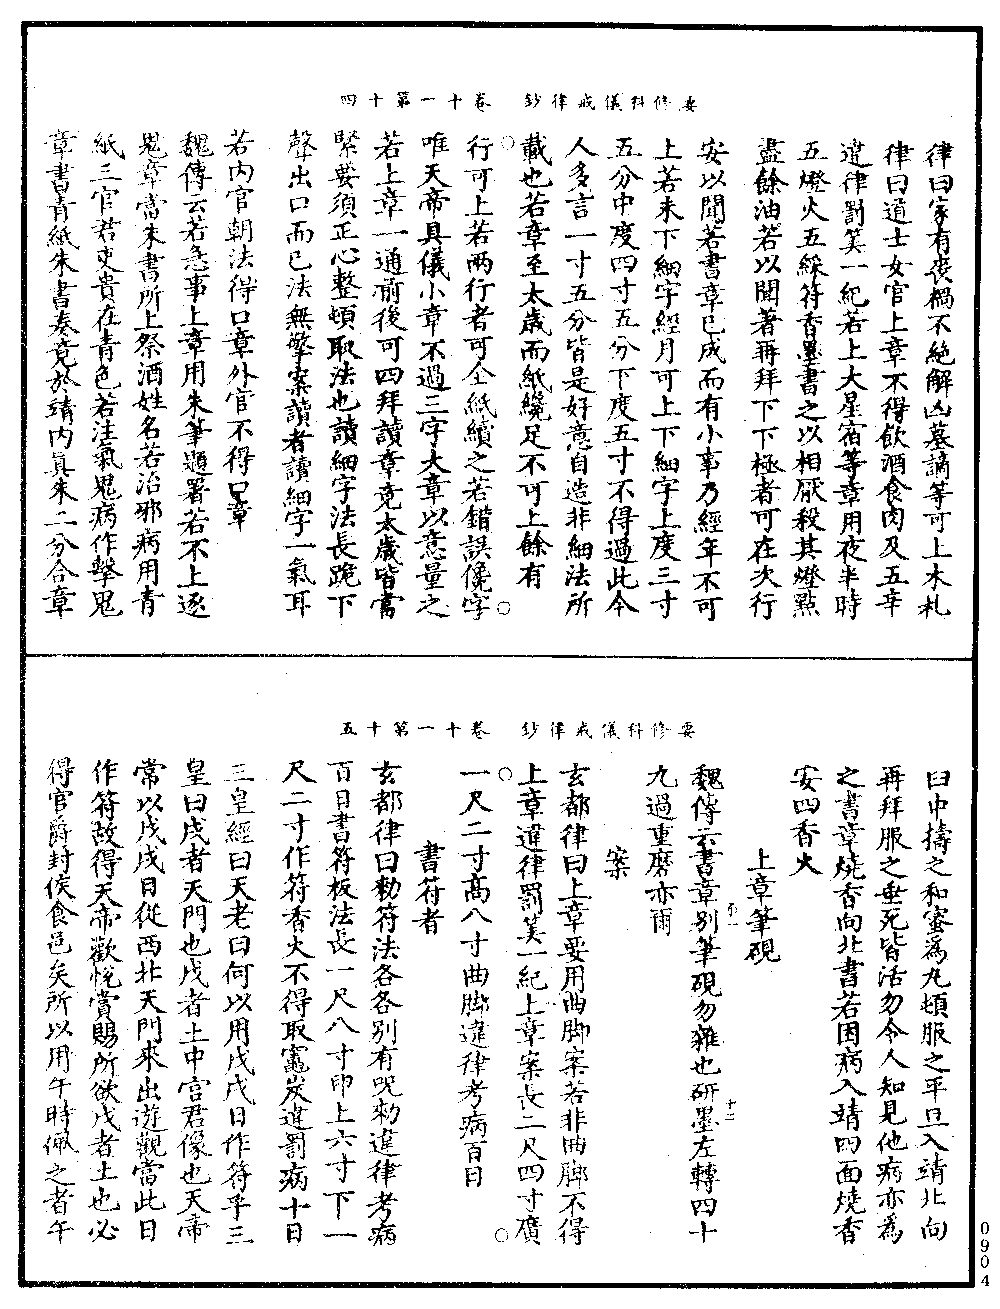 要修科儀戒律鈔　卷十一第十四
律曰家有喪禍不絕解凶墓謫等可上木札
律曰道士女官上章不得飲酒食肉及五辛
違律罰筭一紀若上大星宿等章用夜半時
五燈火五綵符香墨書之以相厭殺其燈點
盡餘油若以聞著再拜下下極者可在次行
安以聞若書章已成而有小事乃經年不可
上若未下細字經月可上下細字上度三寸
五分中度四寸五分下度五寸不得過此今
人多言一寸五分皆是好意自造非細法所
載也若章至太歲而紙纔足不可上餘有
行可上若兩行者可全紙續之若錯誤儳字
唯天帝具儀小章不過三字大章以意量之
若上章一通前後可四拜讀章竟太歲皆當
緊要須正心整頓取法也讀細字法長跪下
聲出口而已法無擎案讀者讀細字一氣耳
若內官朝法得口章外官不得口章
魏傳云若急事上章用朱筆題署若不上逐
鬼章當朱書所上祭酒姓名若治邪病用青
紙三官君吏貴在青色若注氣鬼病作擊鬼
章書青紙朱書奏竟於靖內真朱二分合章
要修科儀戒律鈔　卷十一第十五
臼中擣之和蜜為丸頓服之平旦入靖北向
再拜服之垂死皆活勿令人知見他病亦為
之書章燒香向北書若困病入靖四面燒香
安四香火
上章筆硯
魏傳云書章別筆硯勿雜也研墨左轉四十
九過重磨亦爾
案
玄都律曰上章要用曲脚案若非曲脚不得
上章違律罰筭一紀上章案長二尺四寸廣
一尺二寸高八寸曲脚違律考病百日
書符者
玄都律曰勑符法各各別有呪勑違律考病
百日書符板法長一尺八寸印上六寸下一
尺二寸作符香火不得取竈炭違罰病十日
三皇經曰天老曰何以用戊戌日作符乎三
皇曰戌者天門也戊者土中宫君像也天帝
常以戊戌日從西北天門來出遊觀當此日
作符故得天帝歡悅賞賜所欲戊者土也必
得官爵封侯食邑矣所以用午時佩之者午
0904